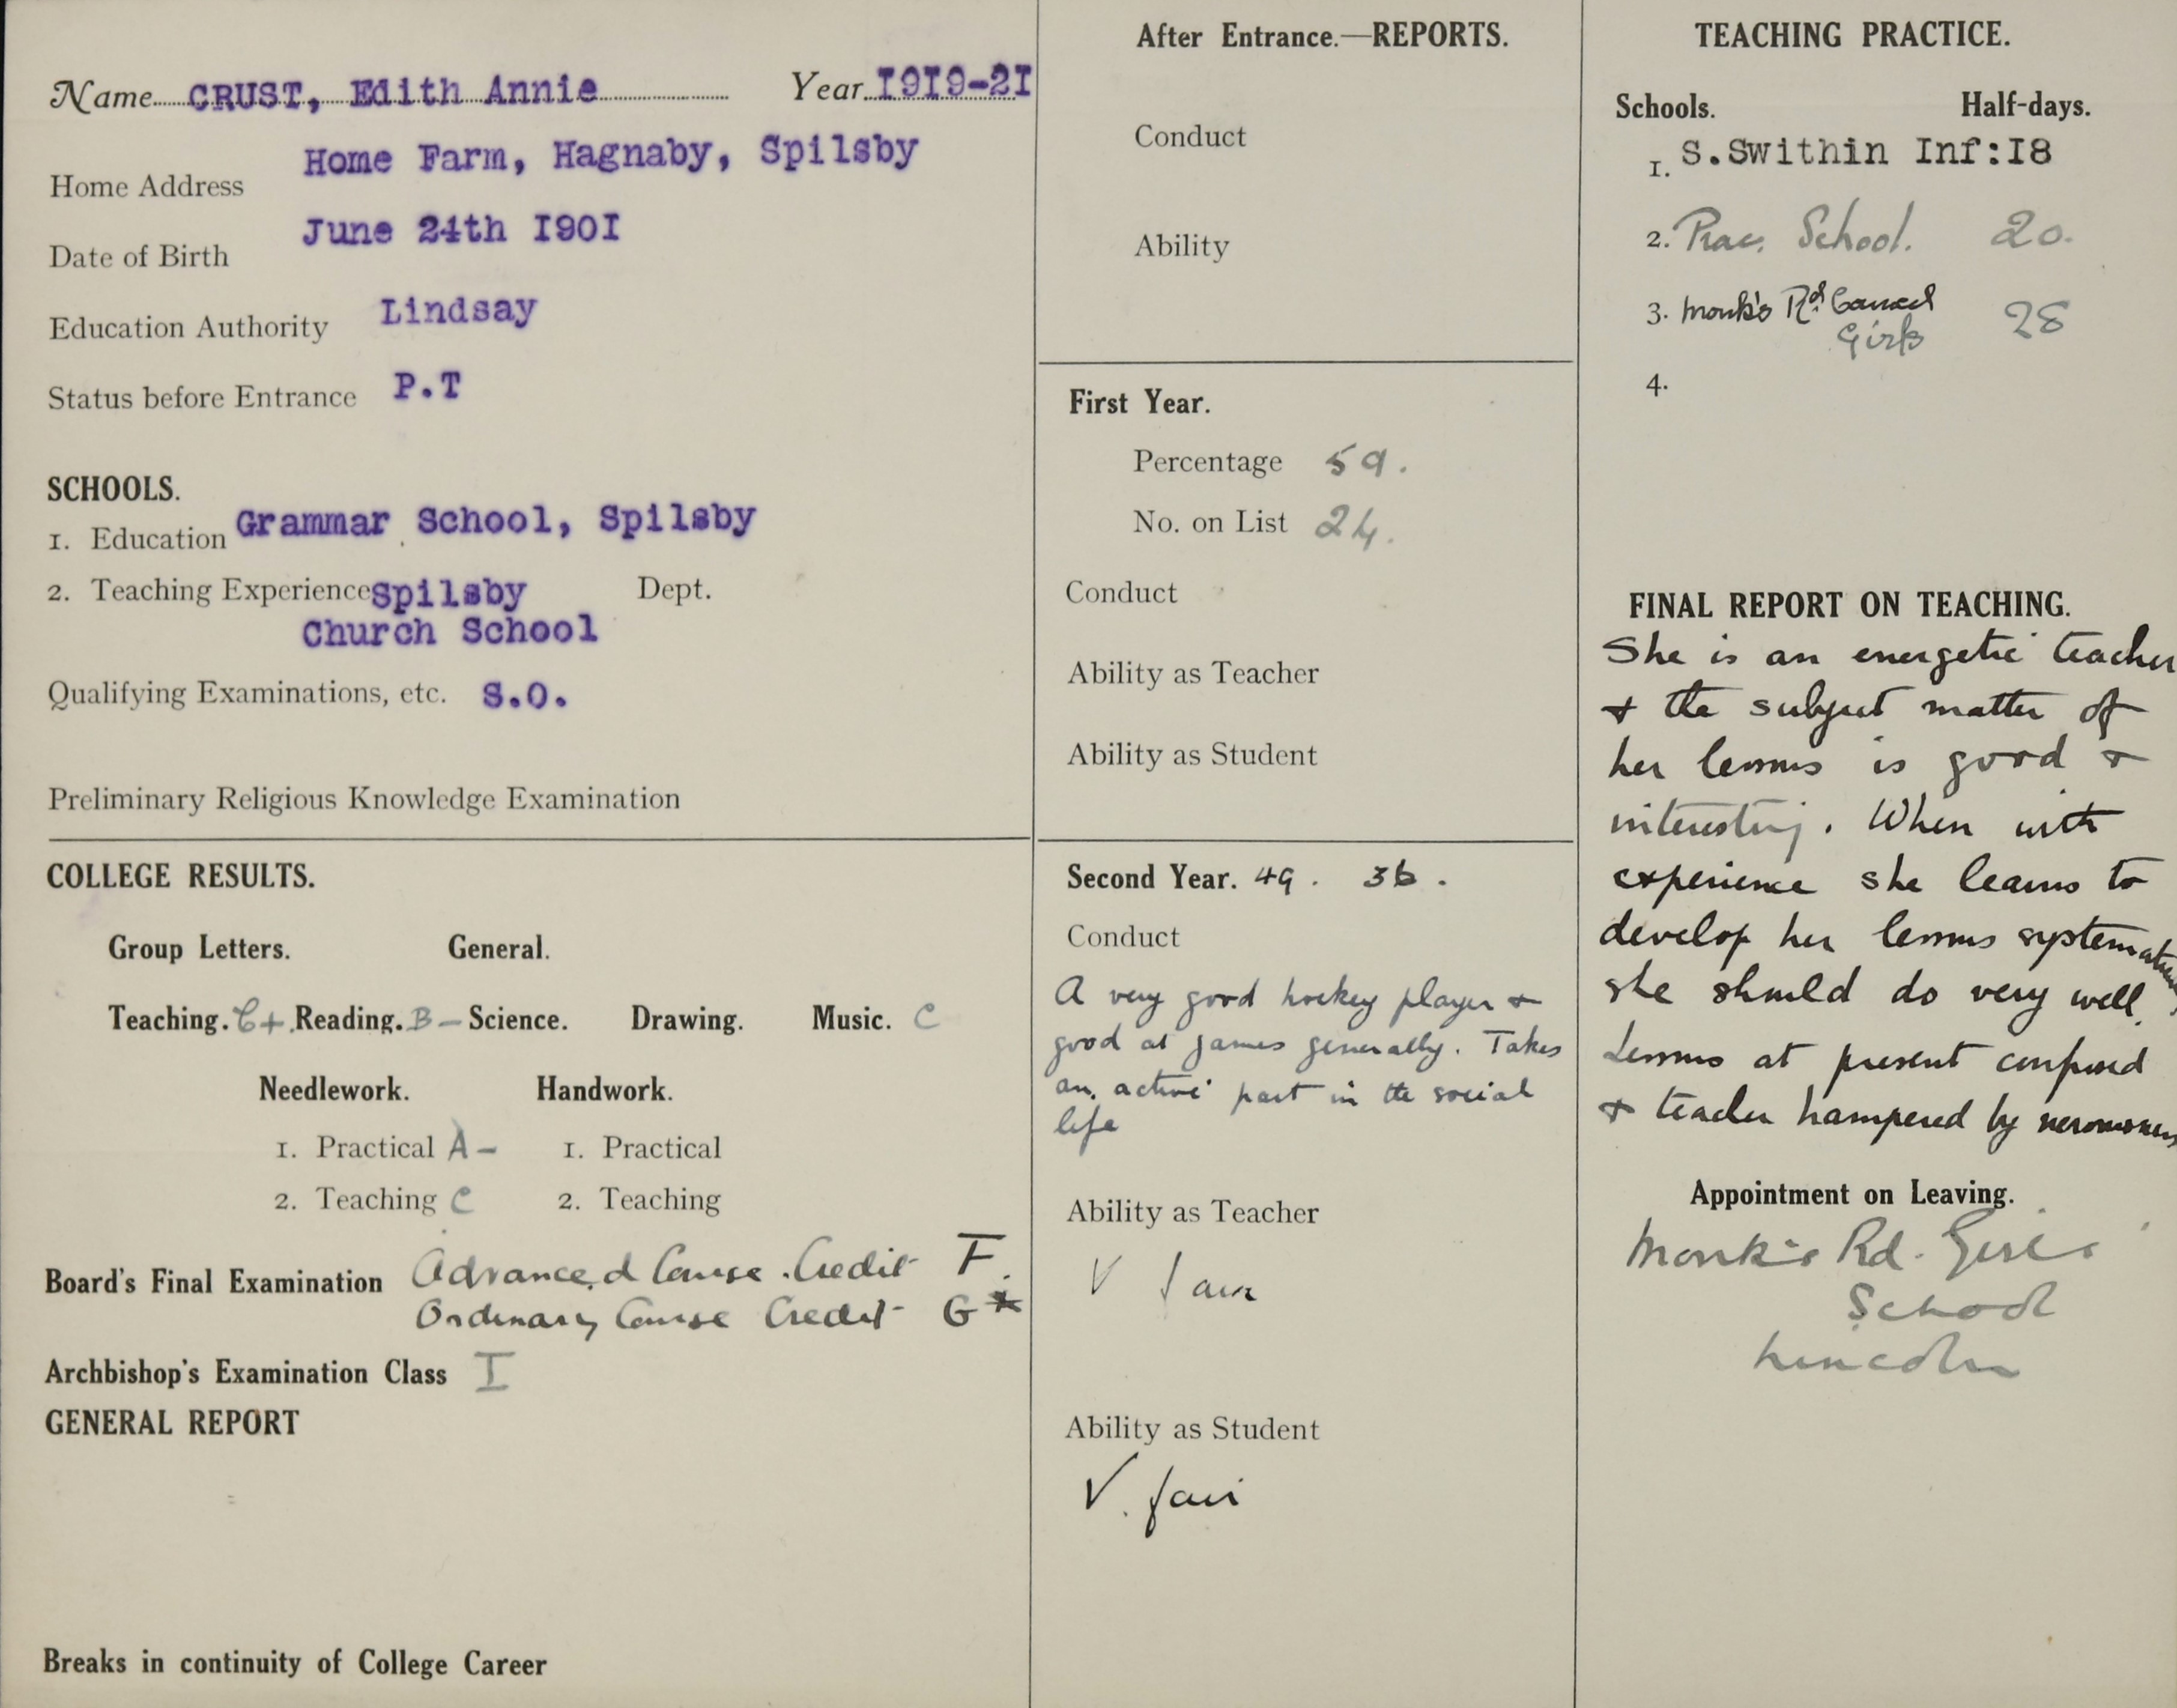 Name CRUST, Edith Annie Year I9I9-2I
Home Address Home Farm, Hagnaby, Spilsby
Date of Birth June 24th I90I
Education Authority Lindsay
Status before Entrance P.T
SCHOOLS.
1. Education Grammar School, Spilsby
2. Teaching Experience Spilsby Dept.
Church School
Qualifying Examinations, etc. S.O.
Preliminary Religious Knowledge Examination
COLLEGE RESULTS.
Group Letters. General.
Teaching. C+. Reading. B- Science. Drawing. Music. C
Needlework. Handwork.
1. Practical A- 1. Practical
2. Teaching C 2. Teaching
Board's Final Examination Advanced Course. Credit F.
Ordinary Course Credit G*
Archbishop's Examination Class I
GENERAL REPORT
Breaks in continuity of College Career
After Entrance.—REPORTS.
Conduct
Ability
First Year.
Percentage 59.
No. on List 24.
Conduct
Ability as Teacher
Ability as Student
Second Year. 49. 36.
Conduct
A very good hockey player +
good at games generally. Takes
an active part in the social
life
Ability as Teacher
V fair
Ability as Student
V. fair
TEACHING PRACTICE.
Schools. Half-days.
1. S.Swithin Inf:I8
2. Prac. School. 20.
3. Monk's Rd. Council
Girls 28
4.
FINAL REPORT ON TEACHING.
She is an energetic teacher
+ the subject matter of
her lessons is good +
interesting. When with
experience she learns to
develop her lessons
she should do very well.
Lessons at present confused
+ teacher hampered by nervousness
Appointment on Leaving.
Monk's Rd. Girls
School
Lincoln